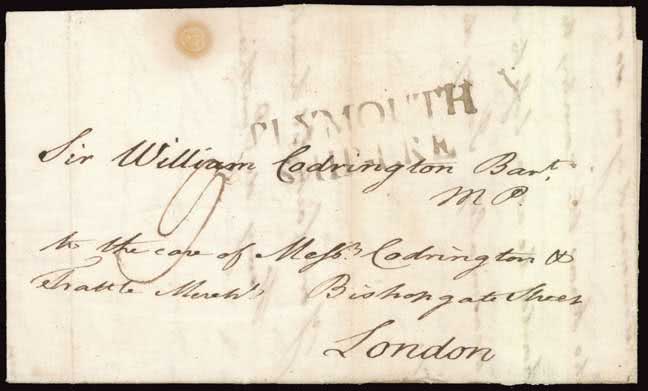 PLYMOUTH
Sir William Codrington Bart.
M P.
to the care of Messrs. Codrington &
Merchts Bishopgate Street
London